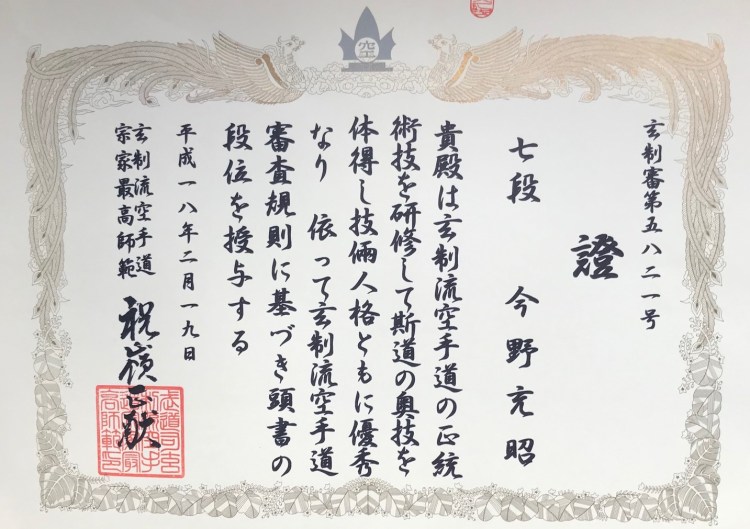 空
玄制審第五八二一号
證
七段 今野充昭
貴殿は玄制流空手道の正統
術技を研修して斯道の奥技を
体得し技倆人格ともに優秀
なり 依って玄制流空手道
審査規則に基づき頭書の
段位を授与する
平成一八年二月一九日
玄制流空手道
宗家最高師範
祝嶺正献